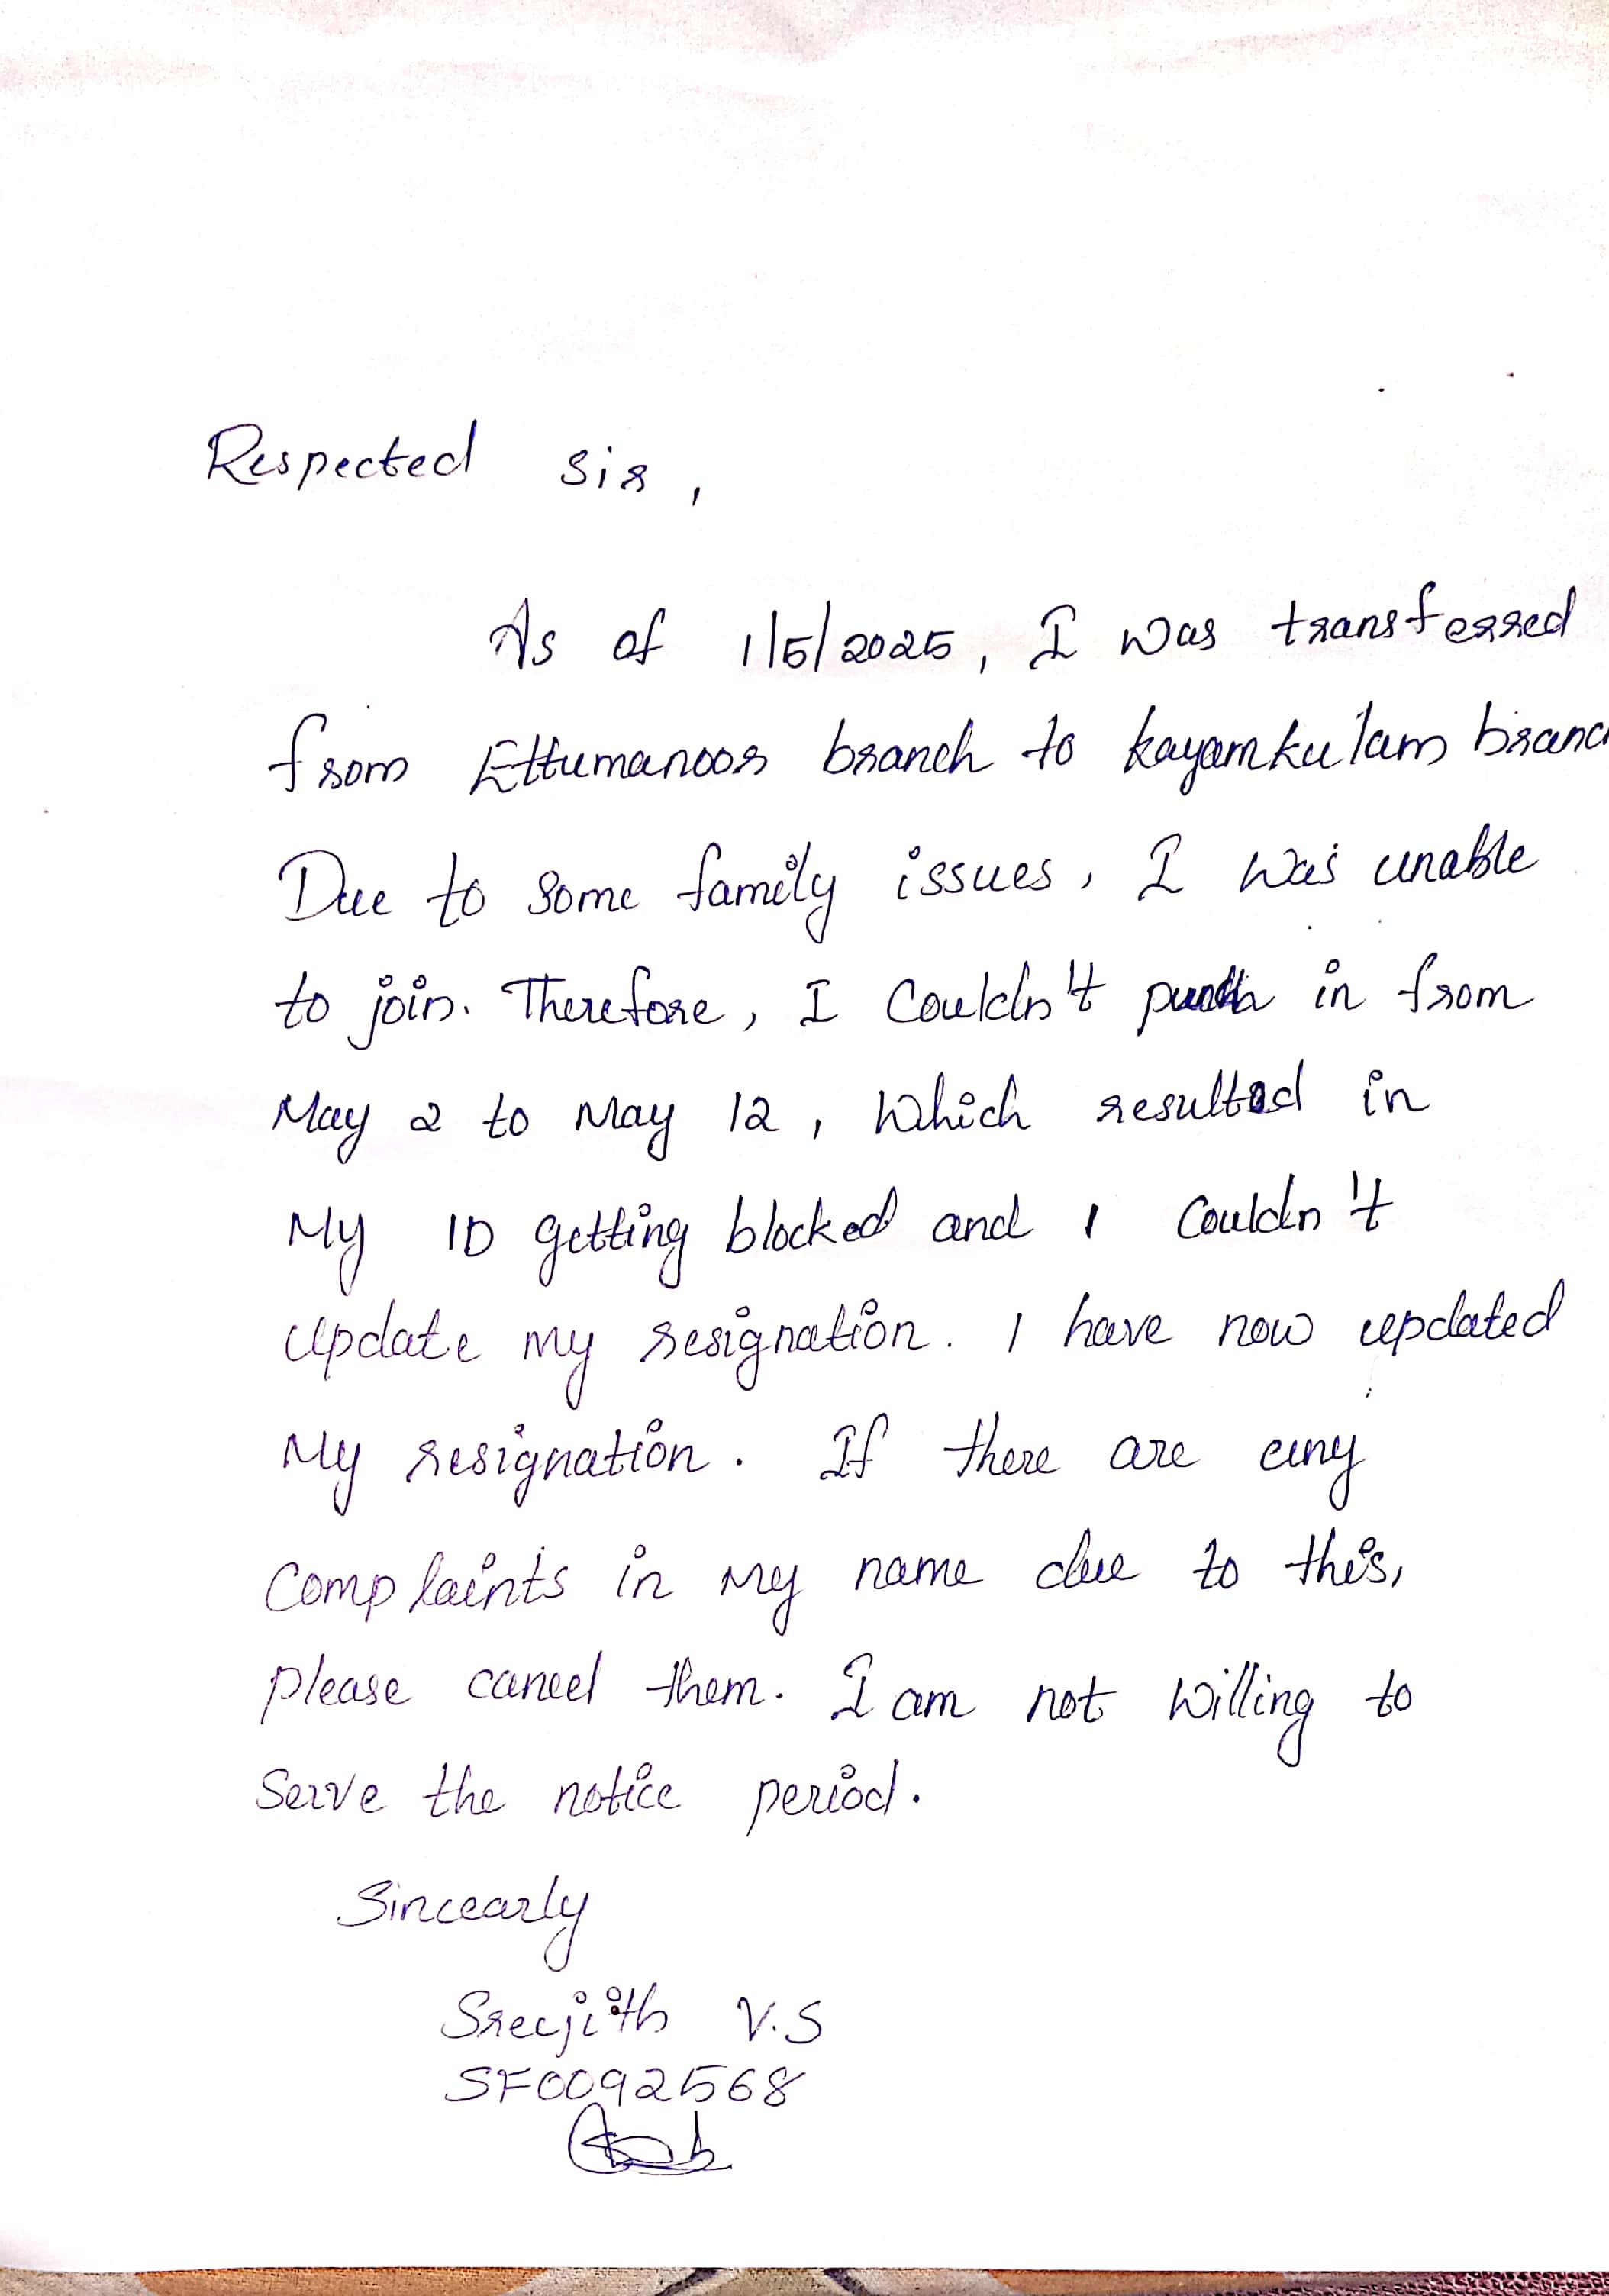 Respected sir,
As of 1/5/2025, I was transferred
from Ettumanoor branch to kayamkulam branc
Due to some family issues, I was unable
to join. Therefore, I couldn't punch in from
May 2 to May 12, which resulted in
My ID getting blocked and I couldn't
update my resignation. I have now updated
My resignation. If there are any
complaints in my name due to this,
please cancel them. I am not willing to
serve the notice period.
Sincearly
Sreejith V.S
SF0092568